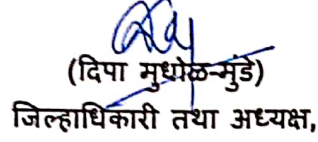 (दिपा मुधोळ-मुंडे)
जिल्हाधिकारी तथा अध्यक्ष,